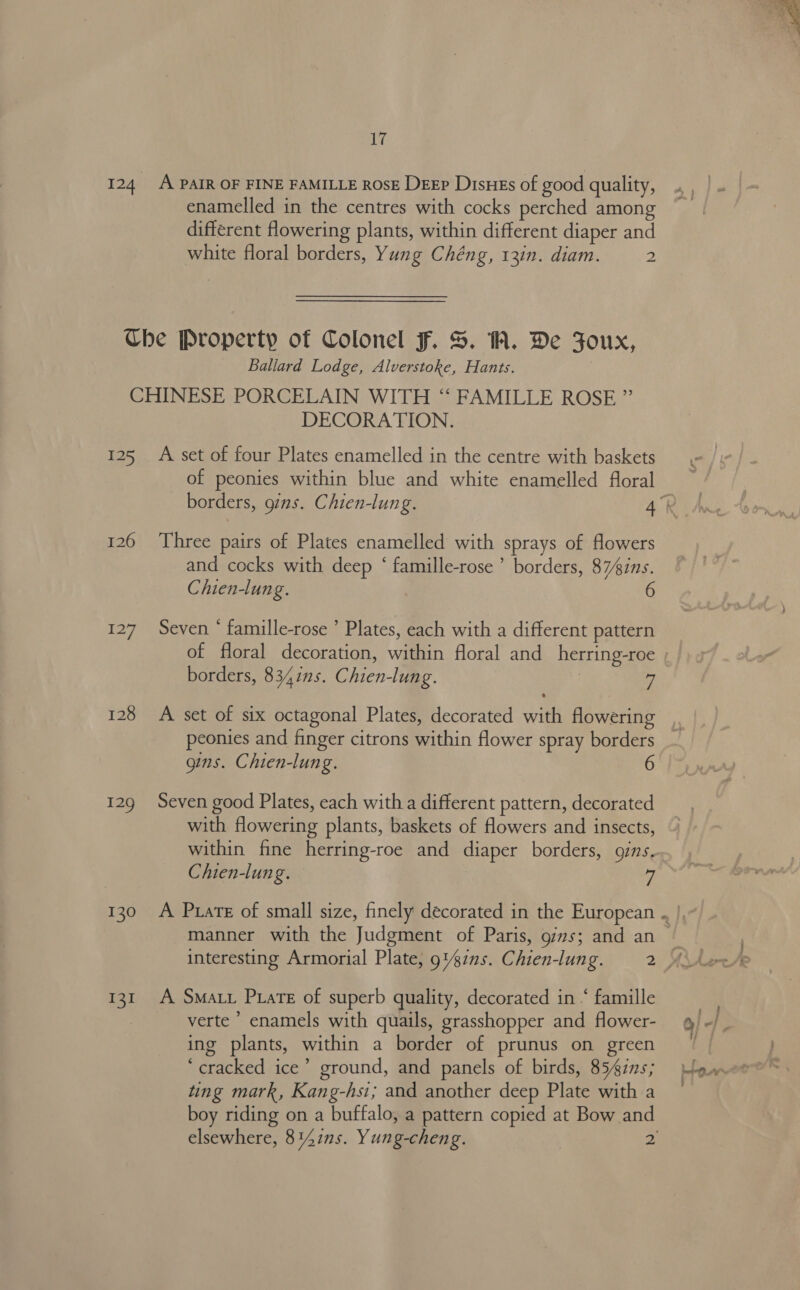 17
124 A PAIR OF FINE FAMILLE ROSE DEEP DISHES of good quality,
enamelled in the centres with cocks perched among
different flowering plants, within different diaper and
white floral borders, Yung Chéng, 13in. diam. 2
The Property of Colonel F. S. M. De Foux,
Ballard Lodge, Alverstoke, Hants.
CHINESE PORCELAIN WITH “ FAMILLE ROSE ”
DECORATION.
125 A set of four Plates enamelled in the centre with baskets
of peonies within blue and white enamelled floral
borders, 9ins. Chien-lung. 4
126 Three pairs of Plates enamelled with sprays of flowers
and cocks with deep ‘ famille-rose ’ borders, 8⅞ins.
Chien-lung. 6
127 Seven ‘ famille-rose ’ Plates, each with a different pattern
of floral decoration, within floral and herring-roe
borders, 8¾ins. Chien-lung. 7
128 A set of six octagonal Plates, decorated with flowering
peonies and finger citrons within flower spray borders
9ins. Chien-lung. 6
129 Seven good Plates, each with a different pattern, decorated
with flowering plants, baskets of flowers and insects,
within fine herring-roe and diaper borders, 9ins.
Chien-lung. 7
130 A PLATE of small size, finely decorated in the European
manner with the Judgment of Paris, 9ins; and an
interesting Armorial Plate, 9⅛ins. Chien-lung. 2
131 A SMALL PLATE of superb quality, decorated in ‘ famille
verte ’ enamels with quails, grasshopper and flower-
ing plants, within a border of prunus on green
‘ cracked ice ’ ground, and panels of birds, 8⅝ins;
ting mark, Kang-hsi; and another deep Plate with a
boy riding on a buffalo, a pattern copied at Bow and
elsewhere, 8½ins. Yung-cheng. 2